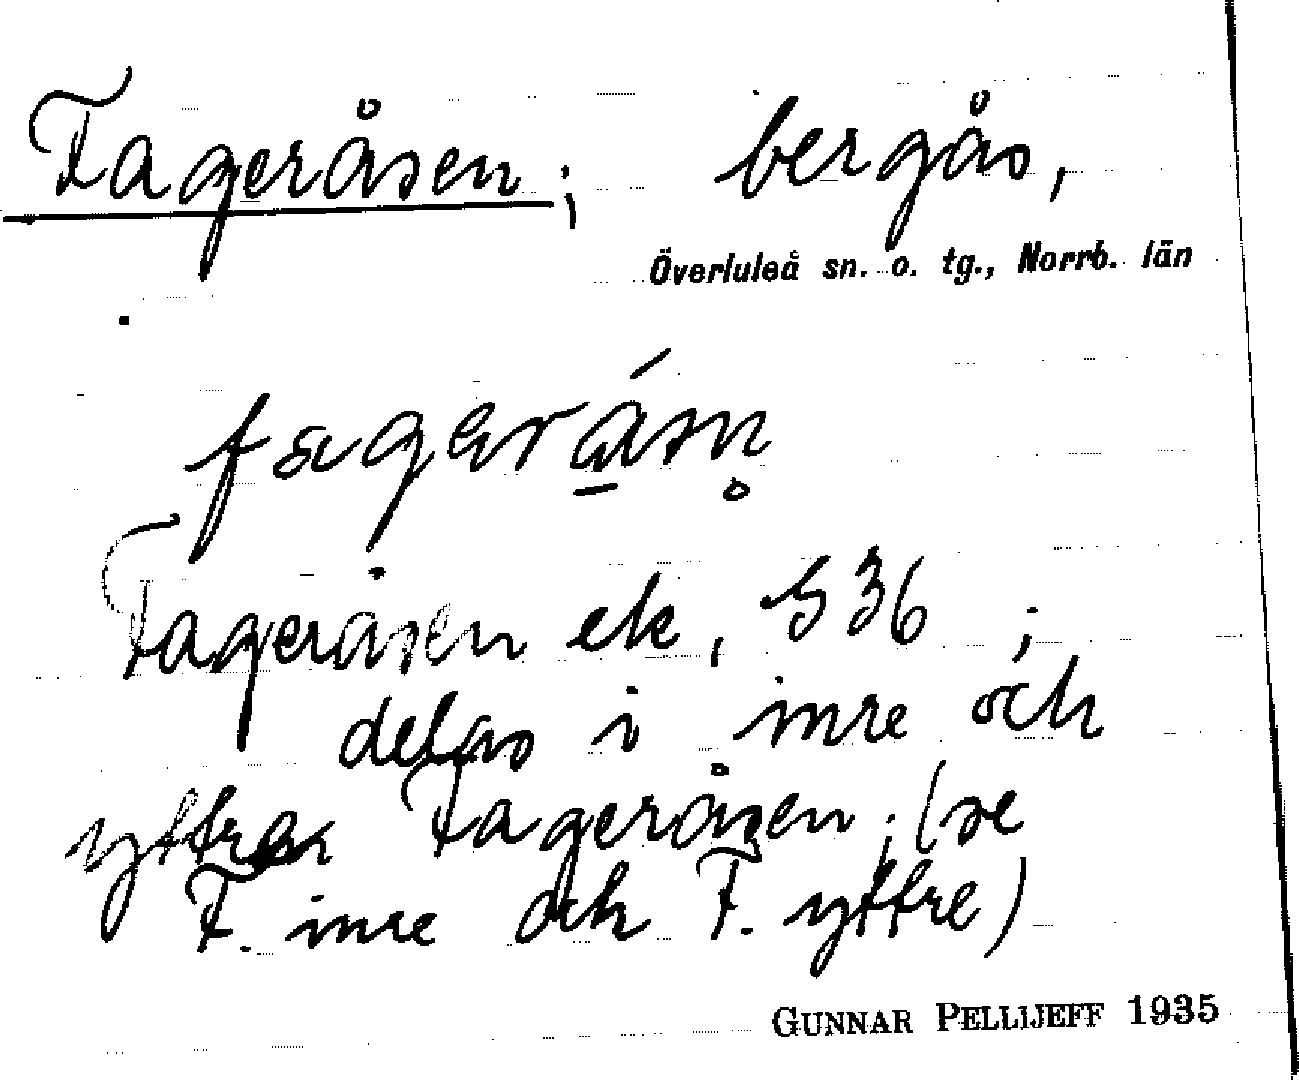 Fageråsen; bergås,
Överluleå sn. o. tg., Norrb. län
Fageråsen ek, S 36;
delas i inre och
yttre Fageråsen; (se
F. inre och F. yttre)
GUNNAR PELLIJEFF 1935